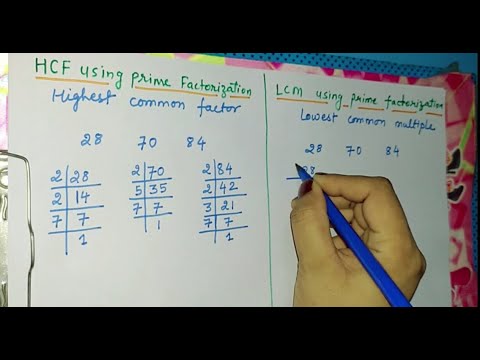 HCF using prime Factorization
Highest common factor
28 70 84
2 28
2 14
7 7
1
2 70
5 35
7 7
1
2 84
2 42
3 21
7 7
1
LCM using prime factorization
Lowest common multiple
28 70 84